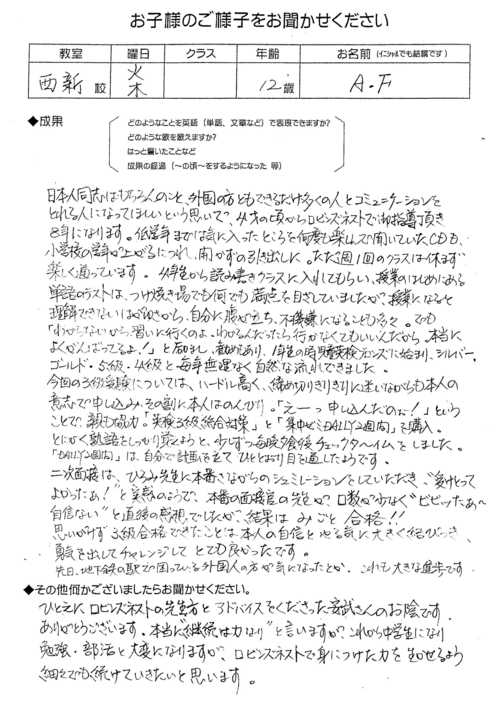 お子様のご様子をお聞かせください
教室 曜日 クラス 年齢 お名前(イニシャルでも結構です)
西新校 火木 12歳 A.F
◆成果
どのようなことを英語（単語、文章など）で表現できますか?
どのような歌を歌えますか?
はっと驚いたことなど
成果の経過（〜の頃〜をするようになった 等）
日本人同志はもちろんのこと、外国の方ともできるだけ多くの人とコミュニケーションを
とれる人になってほしいという思いで、4才の頃からロビンズネストで御指導頂き
8年になります。低学年までは気に入ったところを何度も楽しんで聞いていたCDも、
小学校の学年が上がるにつれ、聞かずの引き出しに。ただ週1回のクラスは休まず
楽しく通っています。4年生から読み書きクラスに入れてもらい、授業のはじめにある
単語のテストは、つけ焼き場でも何でも満点を目ざしていましたが、授業になると
理解できないはがゆさから、自分に腹が立ち、不機嫌になることも多々。でも
「わからないから習いに行くのよ、わかるんだったら行かなくてもいいんだから、本当に
よくがんばってるよ!」と励まし、勧めもあり、1年生の時 英検ブロンズに始まり、シルバー、
ゴールド・5級・4級と毎年無理なく自然な流れできました。
今回の3級受験については、ハードル高く、締め切りぎりぎりに迷いながらも本人の
意志で申し込み、その割に本人はのんびり。「えーっ申し込んだのぉ!」という
ことで、親も協力。「英検3級総合対策」と「集中ゼミDAILY2週間」を購入。
とにかく熟語をしっかり覚えようと、少しずつ毎晩夕食後チェックタイムをしました。
「DAILY2週間」は、自分で計画を立て ひととおり目を通したようです。
二次面接は、ひろみ先生に本番さながらのシュミレーションをしていただき、“受けとって
よかったぁ!”と実感のようで、本番の面接官の先生が、口数が少なく“ビビッたぁ〜
自信ない”と直後の感想でしたが、結果は みごと 合格!!
思いがけず3級合格できたことは本人の自信とやる気に大きく結びつき、
勇気を出してチャレンジして とても良かったです。
先日、地下鉄の駅で困っている外国人の方が気になったとか、これも大きな進歩です
◆その他何かございましたらお聞かせください。
ひとえに ロビンズネストの先生方と アドバイスをくださった安武さんのお陰です。
ありがとうございます。本当に“継続は力なり”と言いますが、これから中学生になり
勉強・部活と大変になりますが、ロビンズネストで身につけた力を 生かせるよう
細々でも続けていきたいと思います。